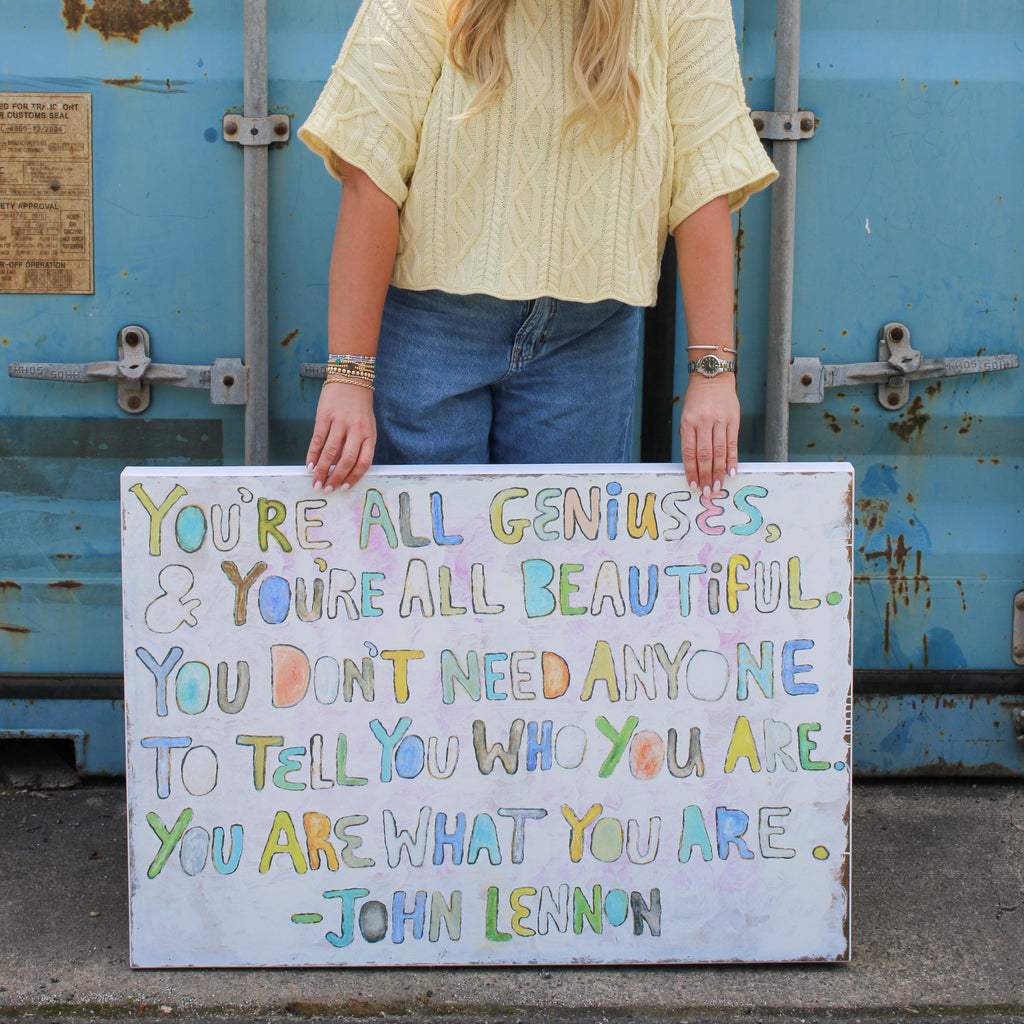 YOU'RE ALL GENiUSES,
& YOU'RE ALL BEAUTiFUL.
YOU DON'T NEED ANYONE
TO TELL YOU WHO YOU ARE.
YOU ARE WHAT YOU ARE.
-JOHN LENNON
CUSTOMS SEAL
APPROVAL
OPERATION